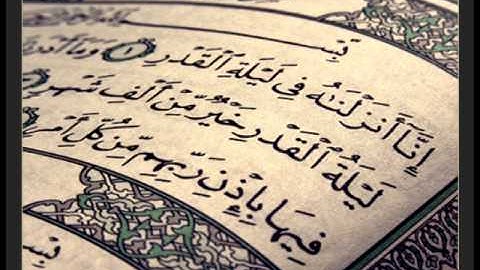 بِسْ
إِنَّا أَنزَلْنَٰهُ فِى لَيْلَةِ ٱلْقَدْرِ ١ وَمَآ أَدْرَىٰ
لَيْلَةُ ٱلْقَدْرِ خَيْرٌ مِّنْ أَلْفِ شَهْرٍ
فِيهَا بِإِذْنِ رَبِّهِم مِّن كُلِّ أَمْرٍ
بِسْ